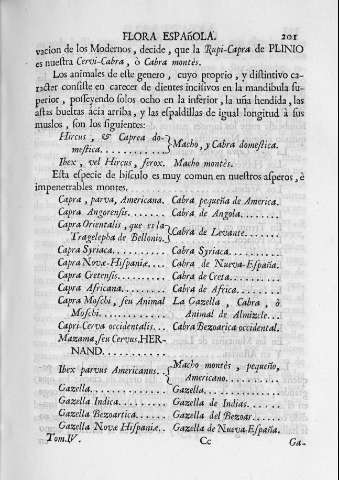 FLORA ESPAñOLA. 201
vacion de los Modernos, decide, que la Rupi-Capra de PLINIO
es nuestra Cervi-Cabra, ò Cabra montès.
Los animales de este genero, cuyo proprio, y distintivo ca-
racter consiste en carecer de dientes incisivos en la mandibula su-
perior, posseyendo solos ocho en la inferior, la uña hendida, las
astas bueltas àcia arriba, y las espaldillas de igual longitud à sus
muslos, son los siguientes:
Hircus, & Caprea do-
mestica........... } Macho, y Cabra domestica.
Ibex, vel Hircus, ferox. Macho montès.
Esta especie de bisulco es muy comun en nuestros asperos, è
impenetrables montes.
Capra, parva, Americana. Cabra pequeña de America.
Capra Angorensis....... Cabra de Angola.......
Capra Orientalis, que es la
Tragelepha de Bellonio. } Cabra de Levante.......
Capra Syriaca......... Cabra Syriaca.........
Capra Novæ-Hispaniæ.... Cabra de Nueva-España.
Capra Cretensis........ Cabra de Creta........
Capra Africana......... Cabra de Africa........
Capra Moschi, seu Animal La Gazella, Cabra, ò
Moschi............. Animal de Almizcle....
Capri-Cerva occidentalis... Cabra Bezoarica occidental.
Mazama, seu Cervus, HER-
NAND..............
Ibex parvus Americanus.. { Macho montès, pequeño,
Americano.........
Gazella............. Gazella.............
Gazella Indica......... Gazella de Indias.......
Gazella Bezoartica...... Gazella del Bezoar......
Gazella Novæ Hispaniæ.. Gazella de Nueva-España.
Tom. IV. Cc Ga-